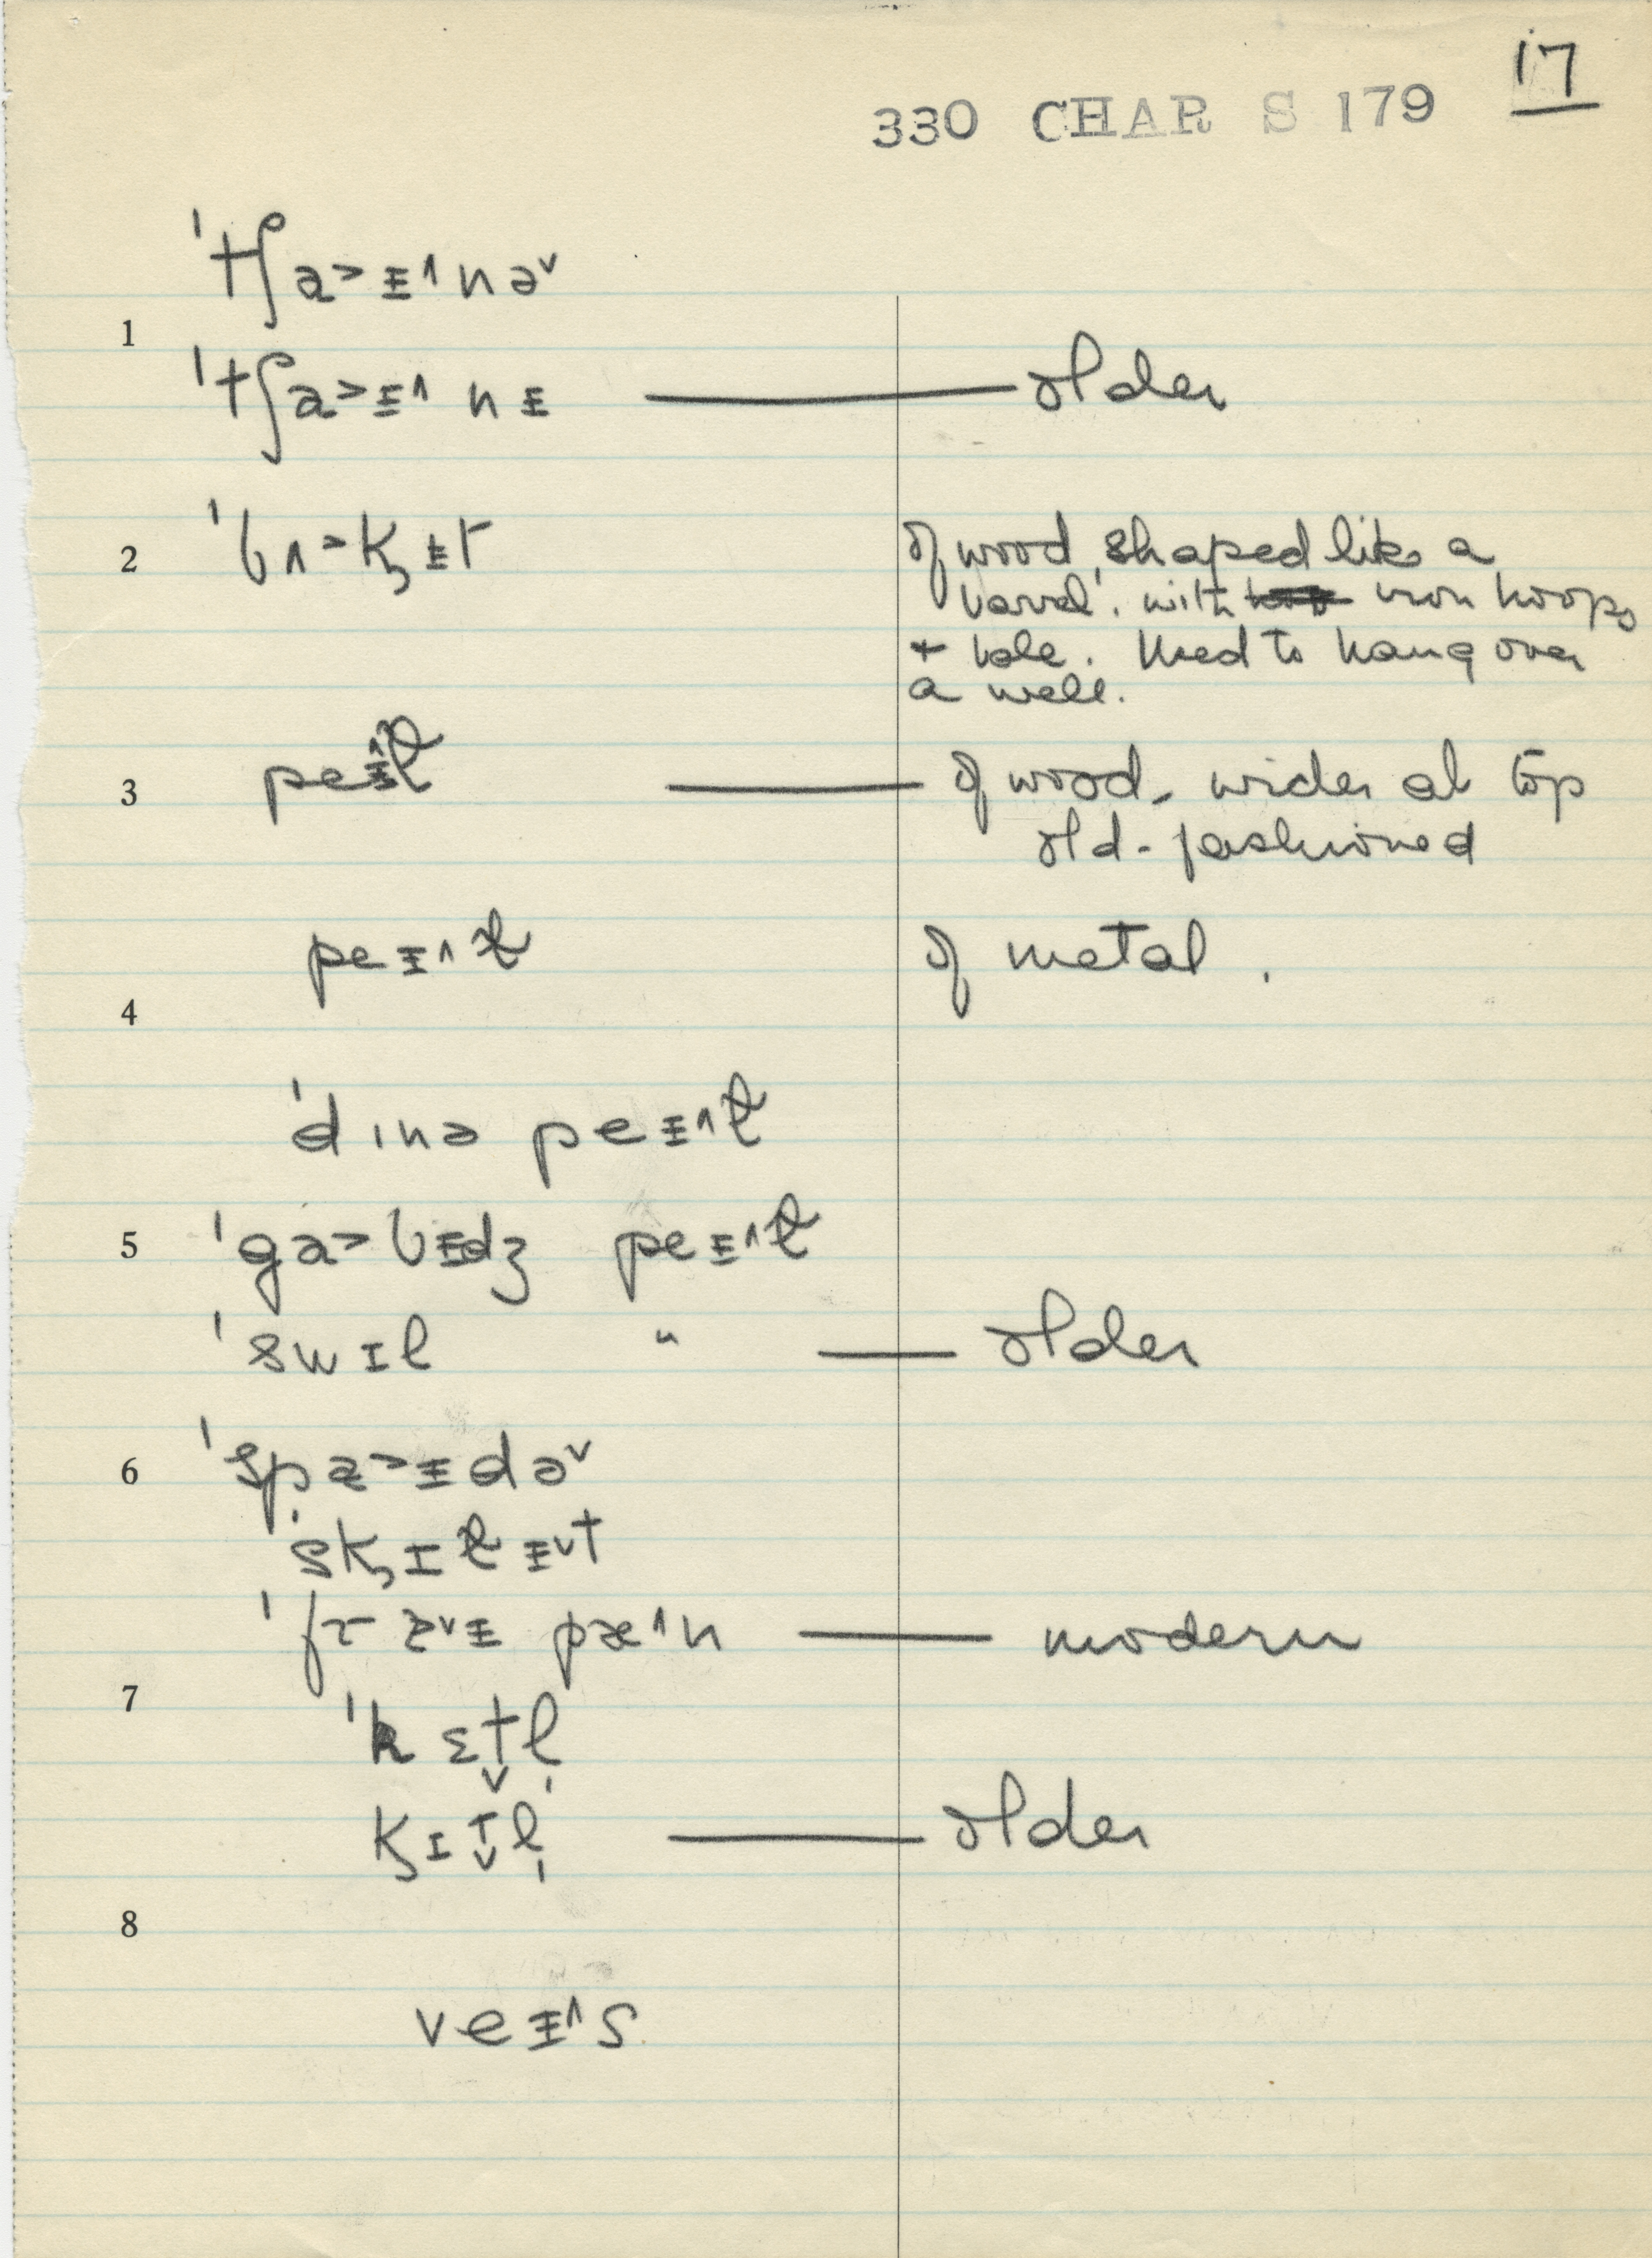 17
330 CHAR S 179
ˈtʃa˃ɪ̵˄nə˅
1
ˈtʃa˃ɪ̵˄nɪ̵ — older
2 ˈbʌ˃k̡ɪ̵t of wood, shaped like a
barrel. with iron hoops
+ bale. Used to hang over
a well.
3 peɪ̵˄ɫ — of wood, wider at top
old-fashioned
peɪ̵˄ɫ of metal.
4
ˈdɪnə peɪ̵˄ɫ
5 ˈga˃bɪ̵dʒ peɪ̵˄ɫ
ˈswɪl " — older
6 ˈspæ˃ɪ̵də˅
skɪ̡ɫɪ̵˅t
pæ˄n — modern
7
ˈkɛt̬l̩
k̡ɪt̬l̩ — older
8
veɪ̵˄s